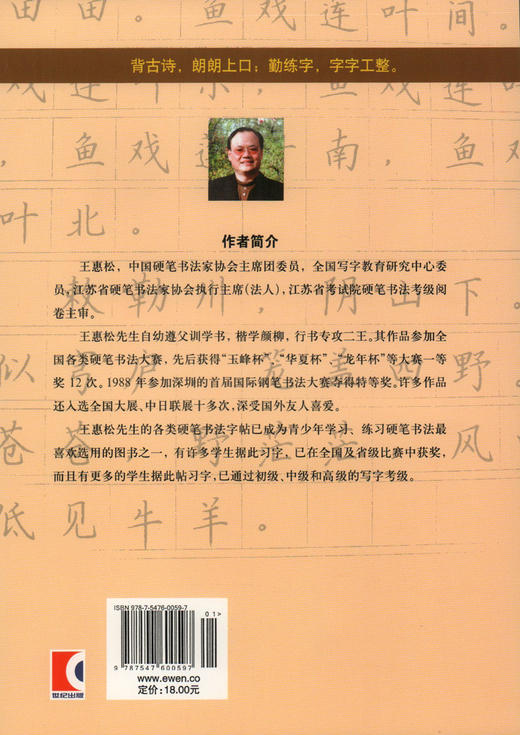 田田。鱼戏连叶间。
背古诗，朗朗上口；勤练字，字字工整。
鱼戏连叶东，鱼
，鱼戏连叶南，鱼
叶北。
作者简介
王惠松，中国硬笔书法家协会主席团委员，全国写字教育研究中心委
员，江苏省硬笔书法家协会执行主席（法人），江苏省考试院硬笔书法考级阅
卷主审。
敕勒川，阴山下。
王惠松先生自幼遵父训学书，楷学颜柳，行书专攻二王。其作品参加全
国各类硬笔书法大赛，先后获得“玉峰杯”、“华夏杯”、“龙年杯”等大赛一等
似穹庐，笼盖四野。
奖 12 次。1988 年参加深圳的首届国际钢笔书法大赛夺得特等奖。许多作品
还入选全国大展、中日联展十多次，深受国外友人喜爱。
苍苍，野茫茫，风
王惠松先生的各类硬笔书法字帖已成为青少年学习、练习硬笔书法最
喜欢选用的图书之一，有许多学生据此习字，已在全国及省级比赛中获奖，
而且有更多的学生据此帖习字，已通过初级、中级和高级的写字考级。
低见牛羊。
ISBN 978-7-5476-0059-7
01>
9 787547 600597
www.ewen.co
定价：18.00元
世纪出版